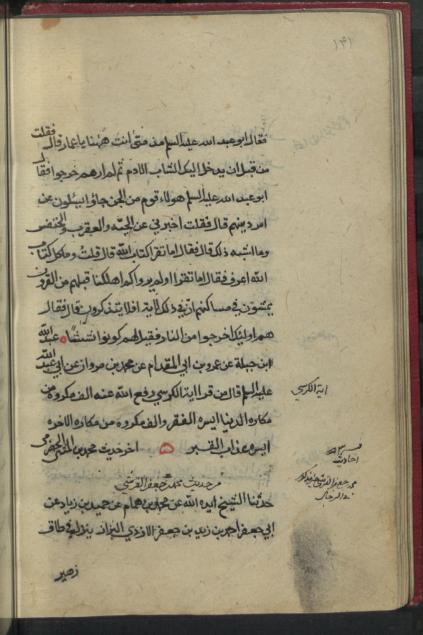 فقال ابو عبد الله عليه السلم من متى انت ههنا يا عمار قال فقلت
من قبل ان يدخل اليك الشاب الادم ثم لم ارهم خرجوا فقال
ابو عبد الله عليه السلم هولاء قوم من الجن جاؤا يسئلون عن
امر دينهم قال فقلت اخبرني عن الحية والعقرب والخنفس
وما اشبه ذلك قال فقال اما تقرا كتاب الله قال قلت وما كل كتاب
الله اعرف فقال اما تقرا اولم يروا كم اهلكنا قبلهم من القرون
يمشون في مساكنهم ان في ذلك لاية افلا يتذكرون قال فقال
هم اوليك اخرجوا من النار فقيل لهم كونوا ششا عبد الله
ابن جبلة عن عمرو بن ابي المقدام عن محمد بن مروان عن ابي عبد الله
عليه السلم قال من قرا اية الكرسي دفع الله عنه الف مكروه من
مكاره الدنيا ايسره الفقر والف مكروه من مكاره الاخره
ايسره عذاب القبر اخر حديث محمد بن المثنى الحضرمي
من حديث محمد بن جعفر القرشي
حدثنا الشيخ ايده الله عن محمد بن همام عن حميد بن زياد عن
ابي جعفر احمد بن زيد بن جعفر الازدي البزاز ينزل في طاق
زهير
اية الكرسي
احاديث
محمد بن جعفر القرشي